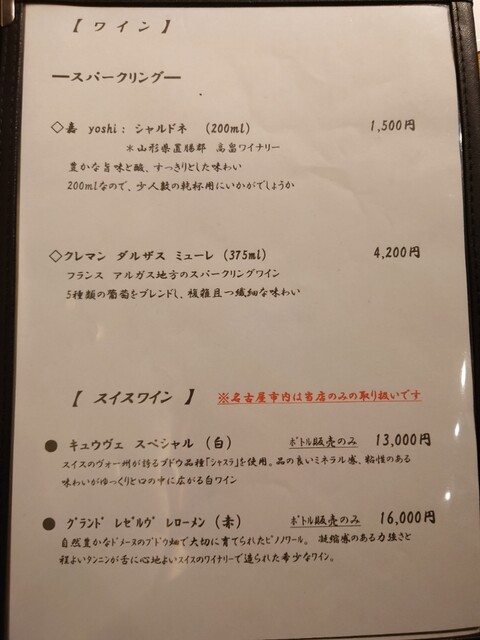 【 ワイン 】
―スパークリング―
◇嘉 yoshi: シャルドネ (200ml) 1,500円
＊山形県置賜郡 高畠ワイナリー
豊かな旨味と酸、すっきりとした味わい
200mlなので、少人数の乾杯用にいかがでしょうか
◇クレマン ダルザス ミューレ (375ml) 4,200円
フランス アルガス地方のスパークリングワイン
5種類の葡萄をブレンドし、複雑且つ繊細な味わい
【 スイスワイン 】 ※名古屋市内は当店のみの取り扱いです
● キュウヴェ スペシャル (白) ﾎﾞﾄﾙ販売のみ 13,000円
スイスのヴォー州が誇るブドウ品種｢シャスラ｣を使用。品の良いミネラル感、粘性のある
味わいがゆっくりと口の中に広がる白ワイン
● ｸﾞﾗﾝﾄﾞ ﾚｾﾞﾙｳﾞ ﾚローメン (赤) ﾎﾞﾄﾙ販売のみ 16,000円
自然豊かなﾄﾞメーヌのブドウ畑で大切に育てられたピノノワール。 凝縮感のある力強さと
程よいタンニンが舌に心地よいスイスのワイナリーで造られた希少なワイン。